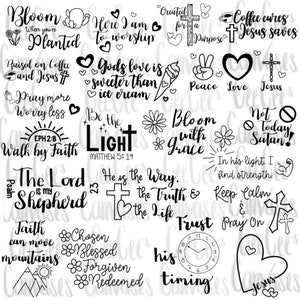 Bloom
Where you're
Planted
Here I am
to worship
Created
for
a
Purpose
Coffee cures
Jesus saves
Raised on Coffee
and Jesus
God's love is
sweeter than
ice cream
Peace Love Jesus
Pray more
Worry less
EPH 2:8
Walk by Faith
Be the
Light
MATTHEW 5:14
Bloom
with
Grace
Not
Today
Satan!
In his light I
find strength
The Lord
is my
Shepherd
Psalm
23
He is the Way,
the Truth &
the Life
Keep Calm
&
Pray On
Faith
can move
mountains
Chosen
Blessed
Forgiven
Redeemed
Trust
his
timing
Jesus